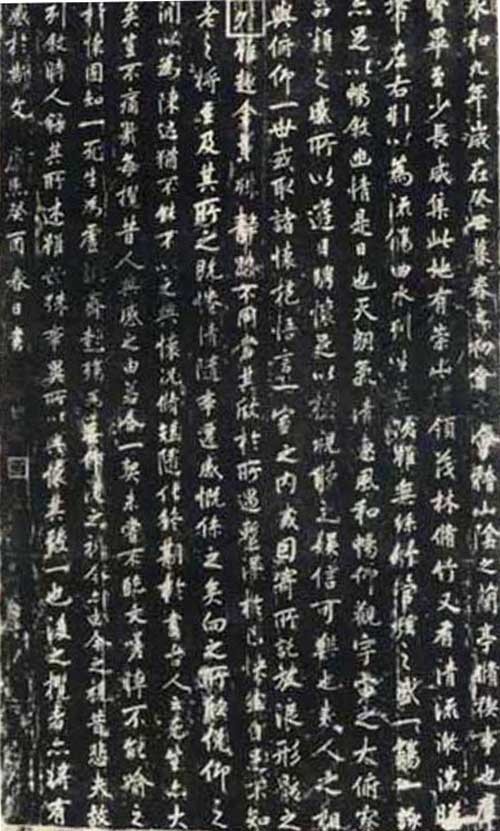 永和九年歲在癸丑暮春之初會會稽山陰之蘭亭脩禊事也羣
賢畢至少長咸集此地有崇山領茂林脩竹又有清流激湍暎
帶左右引以為流觴曲水列坐其次雖無絲竹管弦之盛一觴一詠
亦足以暢敘幽情是日也天朗氣清惠風和暢仰觀宇宙之大俯察
品類之盛所以遊目騁懷足以極視聽之娛信可樂也夫人之相
與俯仰一世或取諸懷抱悟言一室之內或因寄所託放浪形骸之
外雖趣舍萬殊靜躁不同當其欣於所遇蹔得於己怏然自足不知
老之將至及其所之既惓情隨事遷感慨係之矣向之所欣俛仰之
間以為陳迹猶不能不以之興懷況脩短隨化終期於盡古人云死生亦大
矣豈不痛哉每攬昔人興感之由若合一契未嘗不臨文嗟悼不能喻之
於懷固知一死生為虛誕齊彭殤為妄作後之視今亦由今之視昔悲夫故
列敘時人錄其所述雖世殊事異所以興懷其致一也後之攬者亦將有
感於斯文 康熙癸酉春日書